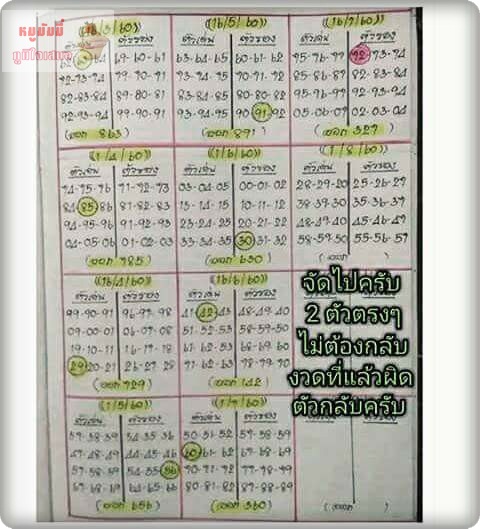 หมูมัมมี่
((16/3/60))
ตัวเด่น ตัวรอง
62-63-64 69-60-61
92-93-94 79-90-91
82-83-84 89-80-81
93-94-92 99-90-91
(ออก 863)
((1/4/60))
ตัวเด่น ตัวรอง
74-75-76 71-72-73
84-85-86 81-82-83
94-95-96 91-92-93
04-05-06 01-02-03
(ออก 985)
((16/4/60))
ตัวเด่น ตัวรอง
99-90-91 96-97-98
09-00-01 06-07-08
19-10-11 16-17-18
29-20-21 26-27-28
(ออก 929)
((1/5/60))
ตัวเด่น ตัวรอง
57-58-59 54-55-56
47-48-49 44-45-46
57-58-59 54-55-56
67-68-69 64-65-66
(ออก 656)
((16/5/60))
ตัวเด่น ตัวรอง
63-64-65 60-61-62
73-74-75 70-71-72
83-84-85 80-81-82
93-94-95 90-91-92
(ออก 891)
((1/6/60))
ตัวเด่น ตัวรอง
03-04-05 00-01-02
13-14-15 10-11-12
23-24-25 20-21-22
33-34-35 30-31-32
(ออก 630)
((16/6/60))
ตัวเด่น ตัวรอง
41-42-43 48-49-40
51-52-53 58-59-50
61-62-63 68-69-60
71-62-63 78-79-70
(ออก 142)
((1/7/60))
ตัวเด่น ตัวรอง
50-51-52 57-58-59
60-61-62 67-68-69
70-71-72 77-78-79
80-81-82 87-88-89
(ออก 360)
((16/7/60))
ตัวเด่น ตัวรอง
95-96-97 92-93-94
85-86-87 82-83-84
75-76-77 72-73-74
05-06-07 02-03-04
(ออก 327)
((1/8/60))
ตัวเด่น ตัวรอง
28-29-20 25-26-27
38-39-30 35-36-37
48-49-40 45-46-47
58-59-50 55-56-57
(ออก )
จัดไปครับ
2 ตัวตรงๆ
ไม่ต้องกลับ
งวดที่แล้วผิด
ตัวกลับครับ
(ออก )